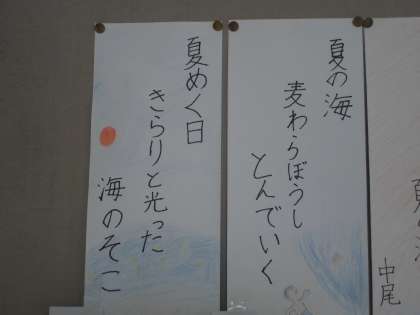 夏の海
麦わらぼうし
とんでいく
夏めく日
きらりと光った
海のそこ
中尾